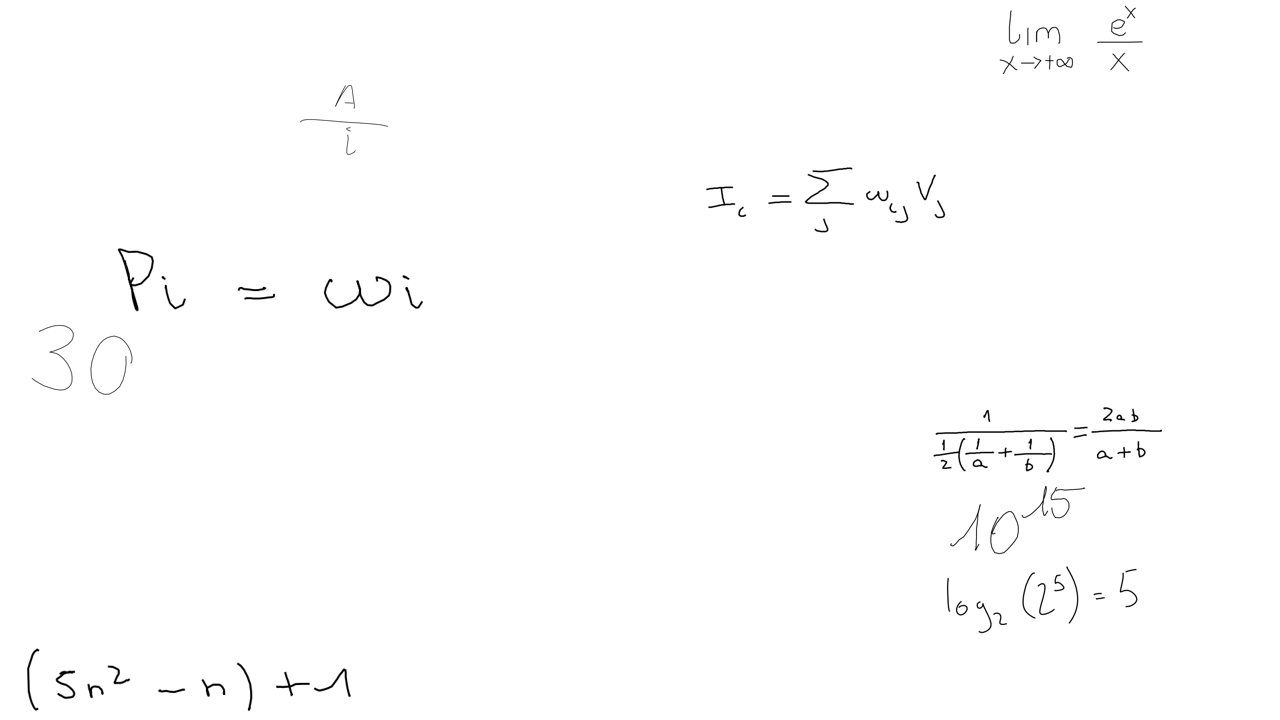 lim x→+∞ e^x/x
A/i
I_c = ∑_j ω_cj V_j
Pi = ωi
30
1/(1/2(1/a + 1/b)) = 2ab/(a+b)
10^15
log_2 (2^5) = 5
(5n^2 - n) + 1